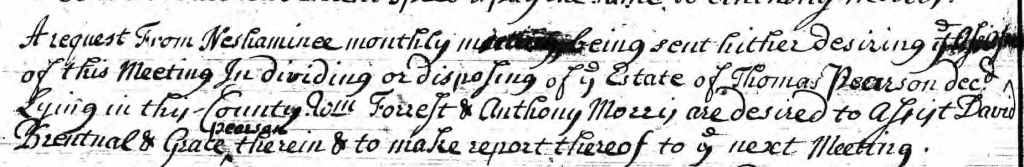 A request From Neshaminee monthly meeting being sent hither desiring yͤ Assist
of this Meeting In dividing or disposing of yͤ Estate of Thomas Pearson decd
Lying in this County Wm Forrest & Anthony Morris are desired to Assist David
Brentnal & Grace Pearson therein & to make report thereof to yͤ next Meeting.